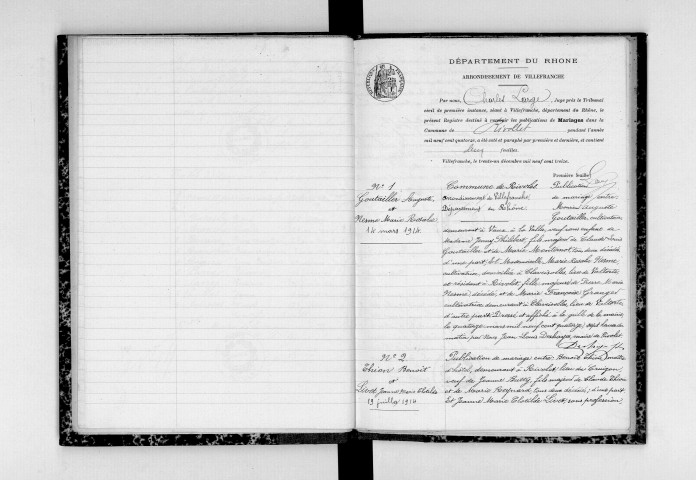 DÉPARTEMENT DU RHONE
ARRONDISSEMENT DE VILLEFRANCHE
Par nous, Charles Large, Juge près le Tribunal
civil de première instance, séant à Villefranche, département du Rhône, le
présent Registre destiné à recevoir les publications de Mariages dans la
Commune de Rivolet pendant l'année
mil neuf cent quatorze, a été coté et paraphé par première et dernière, et contient
feuilles.
Villefranche, le trente-un décembre mil neuf cent treize.
Première feuille
N° 1
Goutailler Auguste
et
Nesme Marie Rosalie
14 mars 1914
Commune de Rivolet
Arrondissement de Villefranche
Département du Rhône
Publication
de mariage entre
Monsieur Auguste
Goutailler cultivateur
demeurant à Vaux à la Vallée, veuf sans enfant de
Madame Jenny Philibert, fils majeur de Claude Louis
Goutailler et de Marie Monternot, tous deux décédés
d'une part, Et Mademoiselle Marie Rosalie Nesme,
cultivatrice, domiciliée à Chervinges, lieu de
et résidant à Rivolet, fille majeure de Pierre Marie
Nesme, décédé, et de Marie Françoise Granger
cultivatrice demeurant à lieu de
d'autre part. Dressé et affiché à la grille de la mairie,
le quatorze mars mil neuf cent quatorze, sept heures du
matin par Nous Jean Louis maire de Rivolet
N° 2
Thion Benoît
et
Livet Jeanne Marie Clotilde
19 juillet 1914
Publication de mariage entre Benoît Thion, maître
d'hôtel, demeurant à Rivolet, lieu du
veuf de Jeanne fils majeur de Claude Thion
et de Marie tous deux décédés, d'une part
Et Jeanne Marie Clotilde Livet, sans profession,